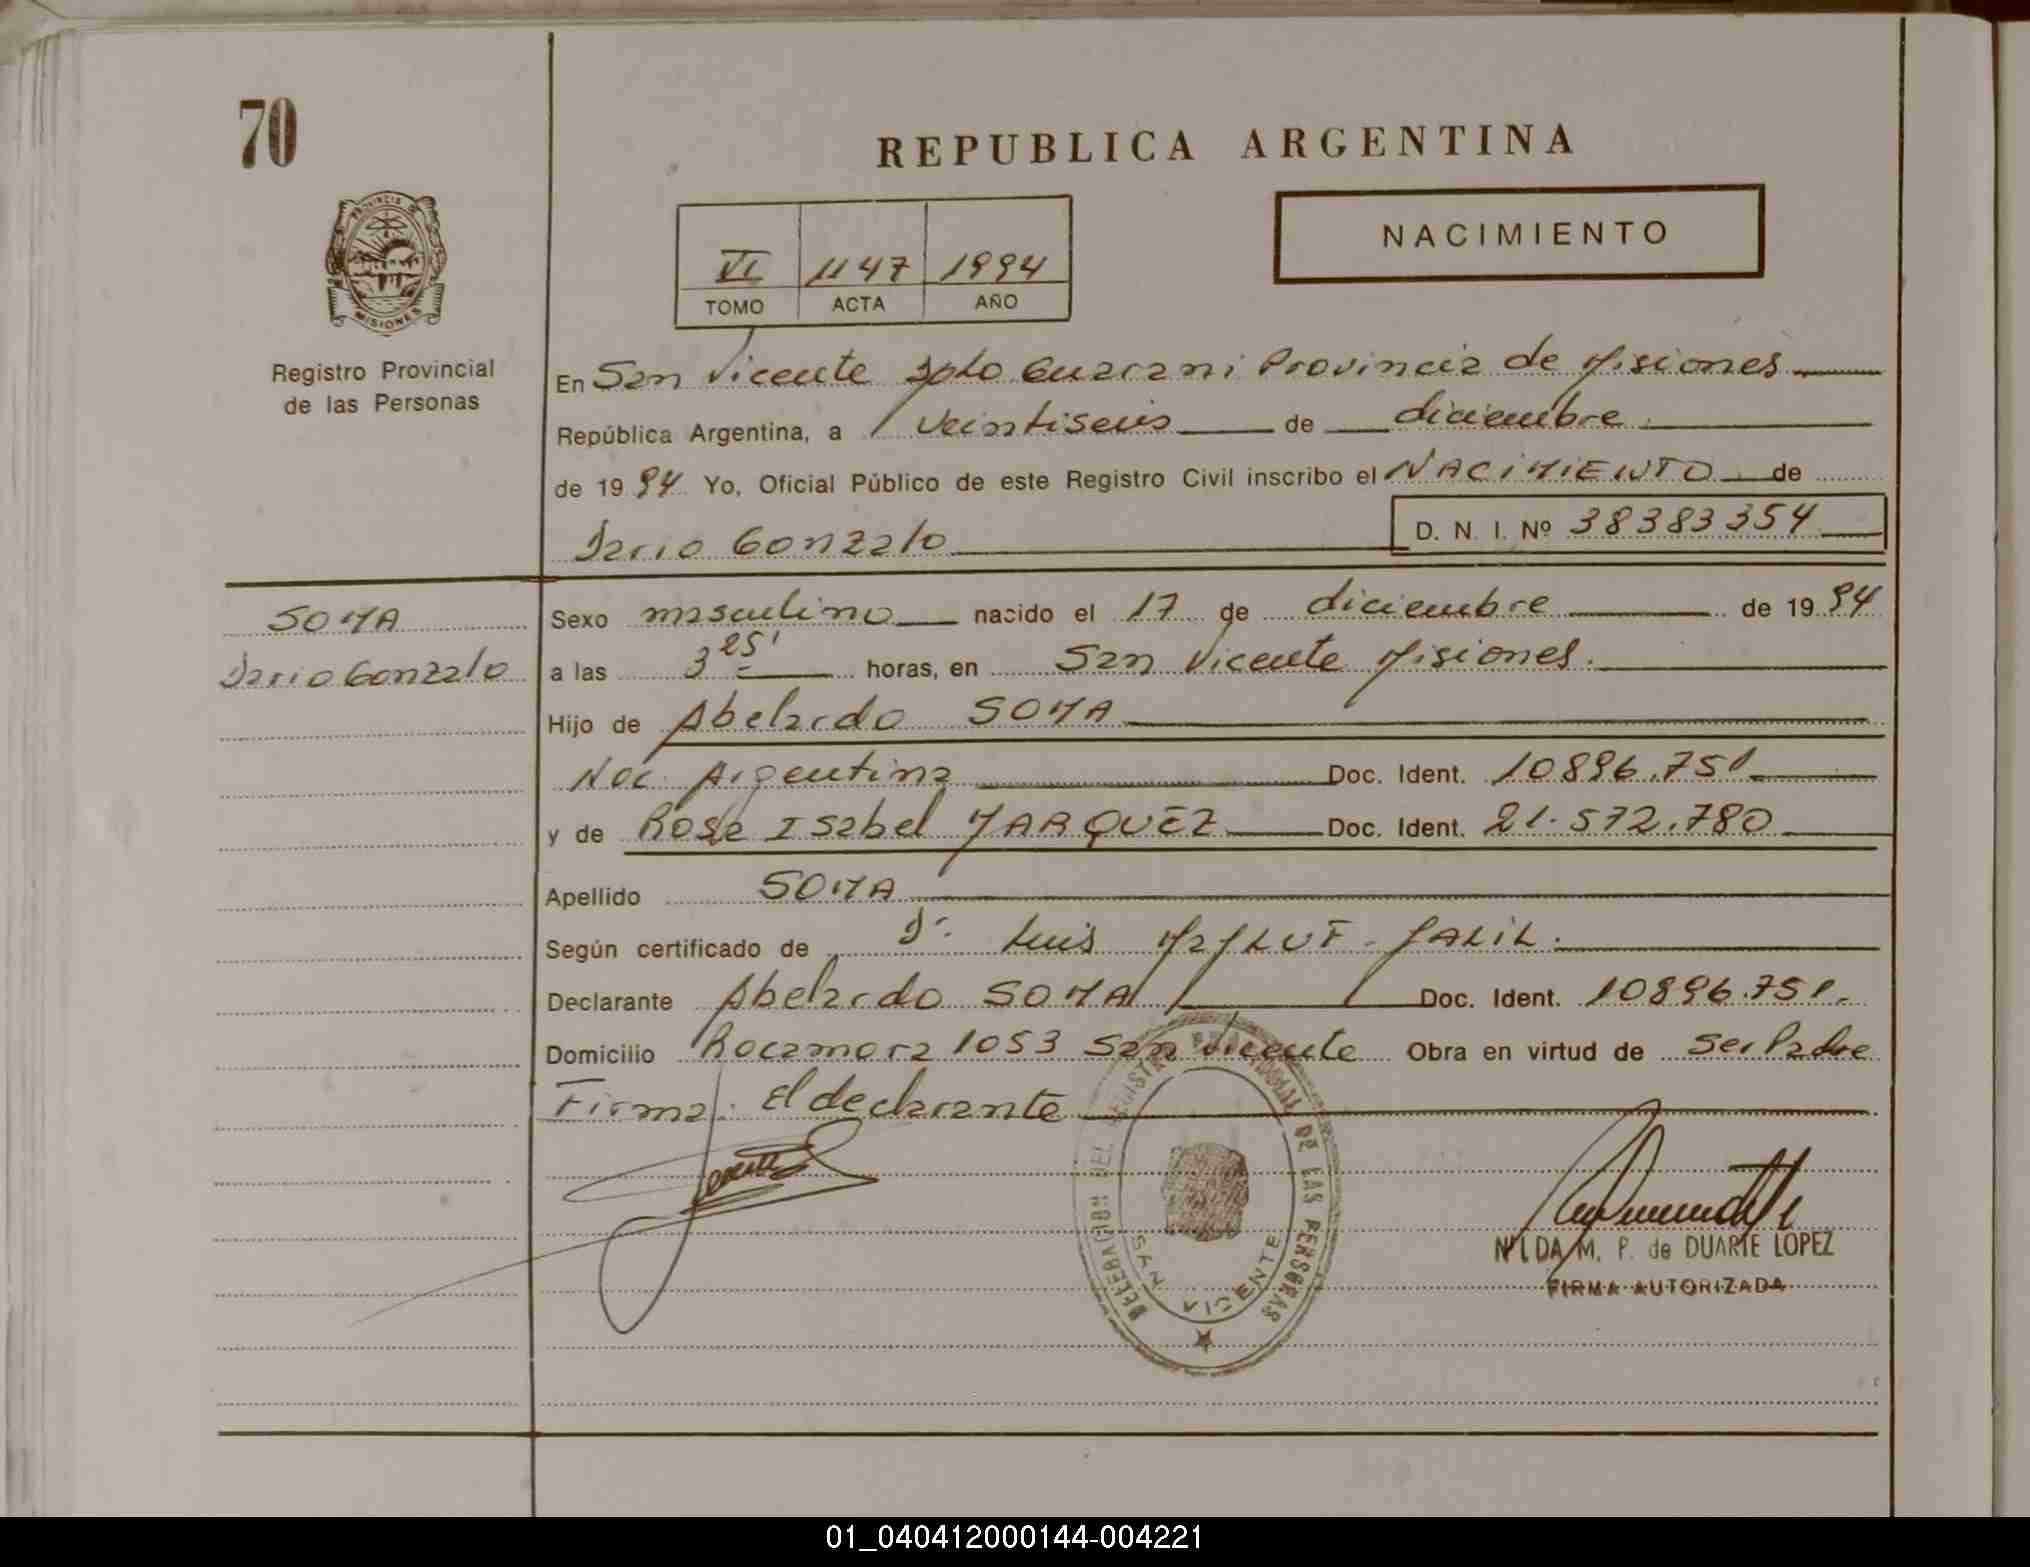 70
REPUBLICA ARGENTINA
NACIMIENTO
VI 1147 1994
TOMO ACTA AÑO
PROVINCIA DE
MISIONES
Registro Provincial
de las Personas
En San Vicente Dpto Guarani Provincia de Misiones
República Argentina, a veintiseis de diciembre
de 1994 Yo, Oficial Público de este Registro Civil inscribo el NACIMIENTO de
Dario Gonzalo D. N. I. Nº 38383354
SOMA
Dario Gonzalo
Sexo masculino nacido el 17 de diciembre de 1994
a las 3 25' horas, en San Vicente Misiones.
Hijo de Abelardo SOMA
Nac. Argentina Doc. Ident. 10896.751
y de Rosa Isabel MARQUEZ Doc. Ident. 21.572.780
Apellido SOMA
Según certificado de Dr. Luis
Declarante Abelardo SOMA Doc. Ident. 10896.751.
Domicilio Rocamora 1053 San Vicente Obra en virtud de ser Padre
Firma: El declarante
DELEGACION DEL REGISTRO PROVINCIAL DE LAS PERSONAS
SAN VICENTE
NILDA M. P. de DUARTE LOPEZ
FIRMA AUTORIZADA
01_040412000144-004221